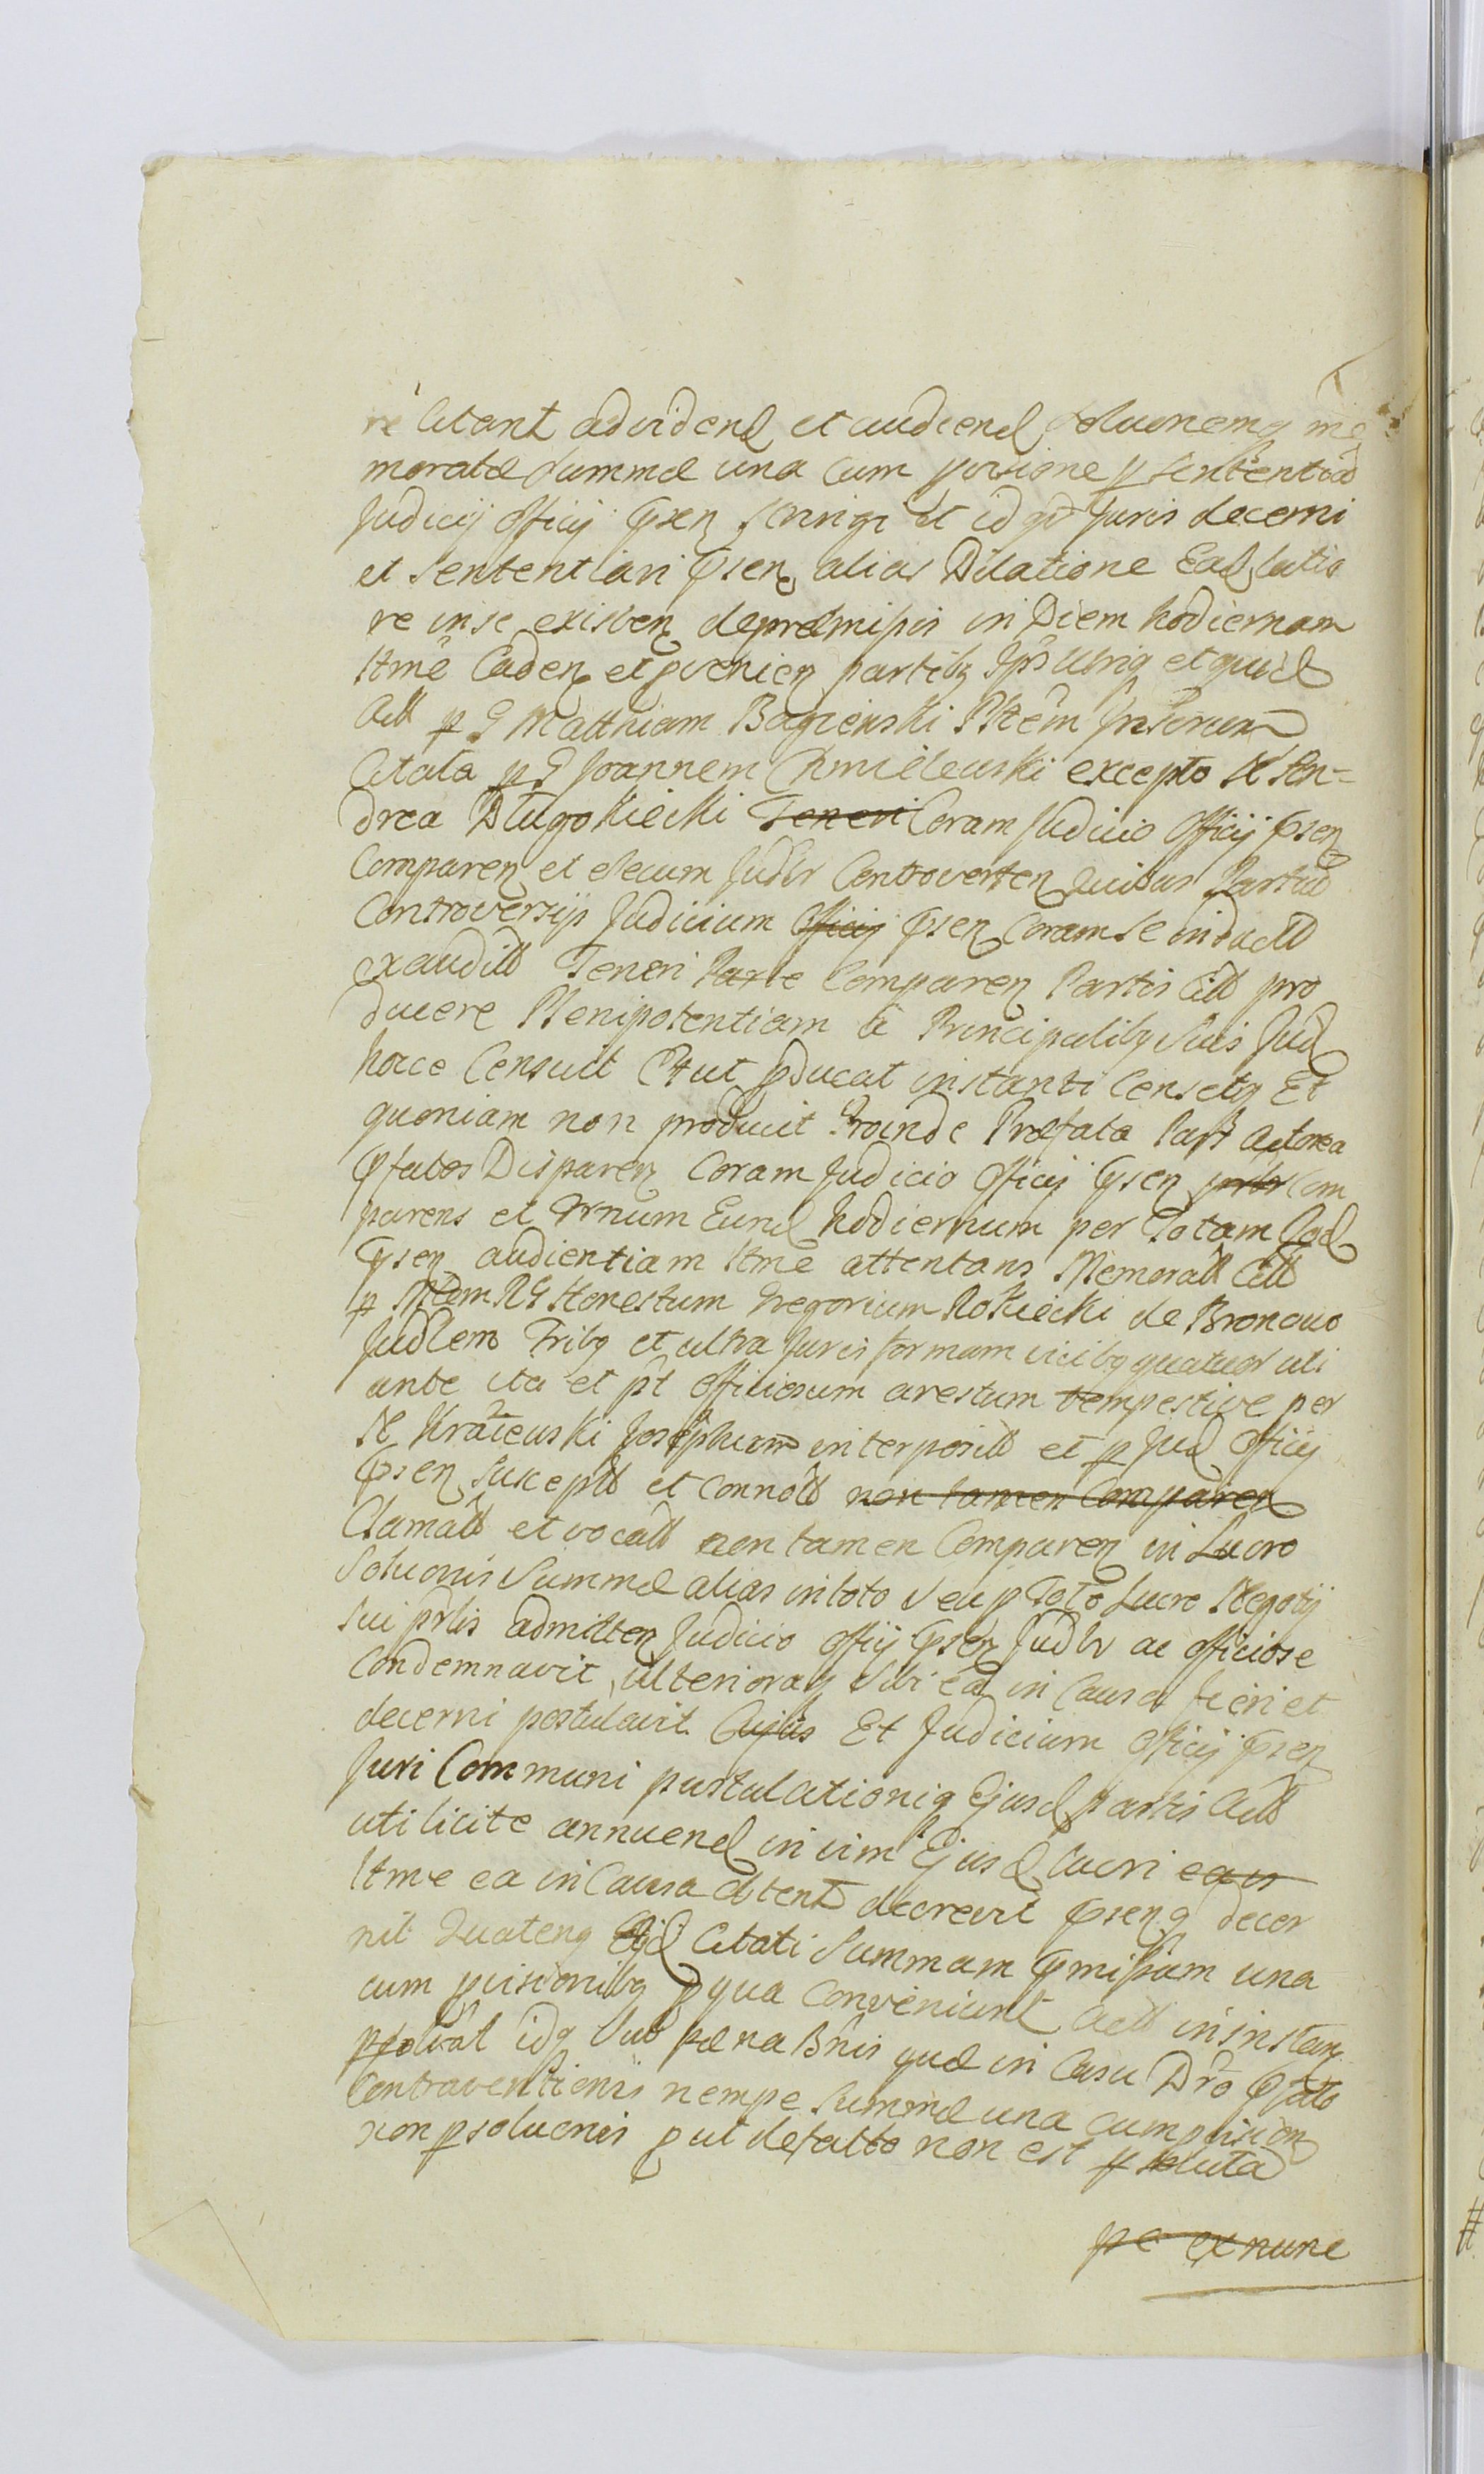 re citant ad videnđ et audienđ solucionemq me
moratæ summæ una cum provisione p sententiã
Judicij Officij Prsen stringi et id qđ Juris decerni
et sententiari Prsen alias Dilatione Eađ latio
re in se existen de præmissis in Diem hodiernam
ltme Caden et proenien partibq Ipis utrinq et quiđ
Act p G Matthiam Bagieński Pltem
Citata p G Joannem Chmielewski excepto N An=
drea Długokiecki Teneri Coram Judicio Officij Prsen
Comparen et secum Judlr Controverten Quibus Partiũ
Controversijs Judicium Officij Prsen Coram se induct
exaudit Teneri Parte Comparen Partis Cit pro
ducere Plenipotentiam a Principalibq suis Juđ
hocce Censuit Et ut producat instanti Censetq Et
quoniam non producit Proinde Præfata Pars Actorea
Pfatos Disparen Coram Judicio Officij Prsen Com
parens et Trnum Eunđ hodiernum per Totam
Prsen audientiam ltme attentans Memorat Cit
p Mlem RG Honestum Gregorium Rokiecki de Bronowo
Judlem Tribq et ultra Juris formam vicibq quatuor uti
ante ita et pt Officiosum arestum tempestive per
N Kraiewski Josephum interposit et p Juđ Officij
Prsen suscept et connot non tamen Comparen
Clamat et vocat non tamen Comparen in Lucro
Solucionis Summæ alias in toto seu p Toto Lucro Negotij
sui prlis admitten Judicio Officij Prsen Judlr ac officiose
Condemnavit, ulterioraq sibi ea in Causa fieri et
decerni postulavit Cujus Et Judicium Officij Prsen
Juri Communi postulationiq Ejusđ Partis Act
uti licite annuenđ in vim Ejusđ lucri ea in
ltme ea in Causa obtent decrevit prsenq decer
nit Quatenq Citati Summam Prmissam una
cum provisionibq p qua Conveniunt Act in instan
psolvat idq sub pæna Bnis quæ in Casu Dro Pfato
Contraventionis nempe Summæ una cum provision
non psolucionis prout de facto non est psoluta
pc ex nunc